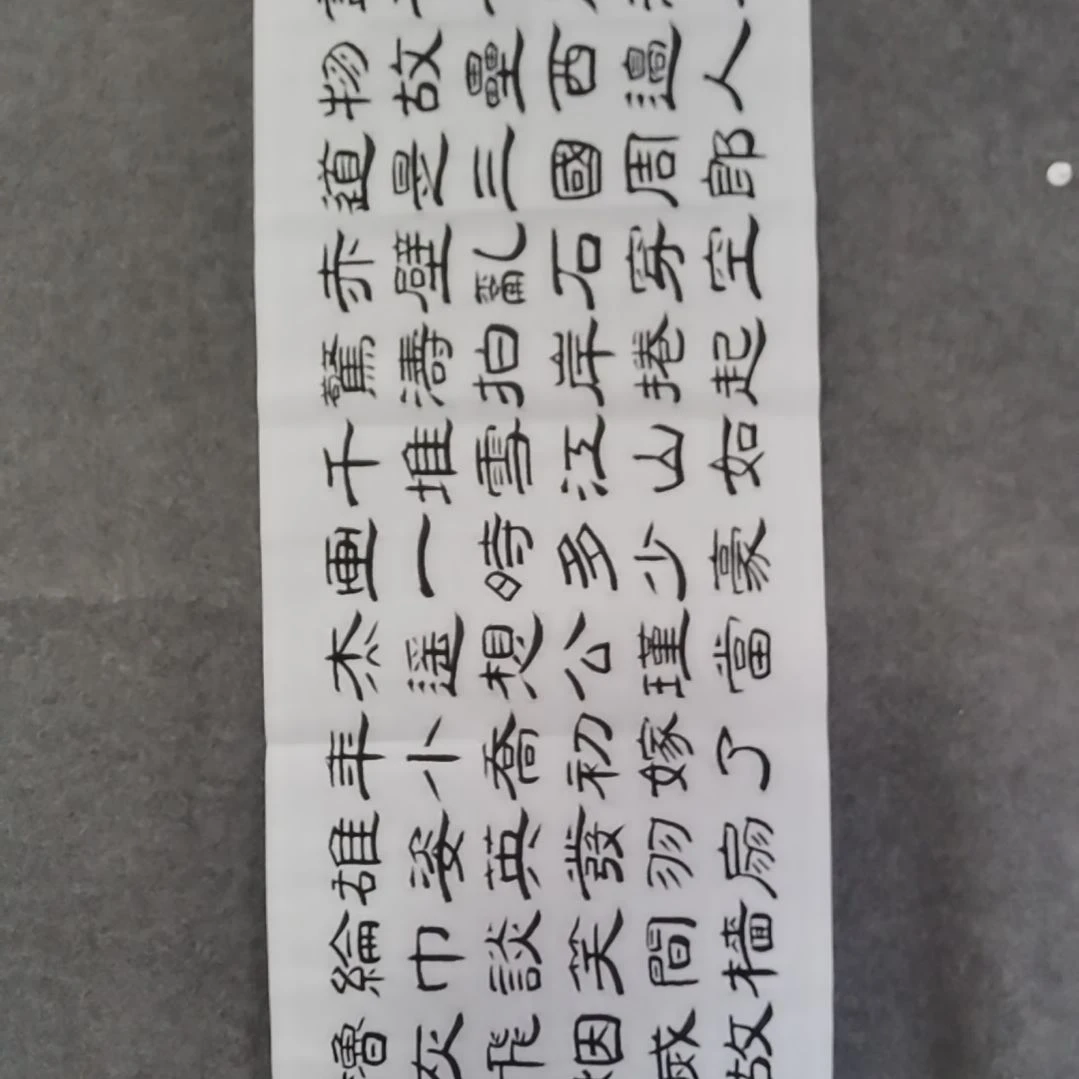 物故壘西邊人
道是三國周郎
赤壁亂石穿空
驚濤拍岸捲起
千堆雪江山如
画一時多少豪
杰遥想公瑾當
年小喬初嫁了
雄姿英發羽扇
綸巾談笑間檣
櫓灰飛烟滅故